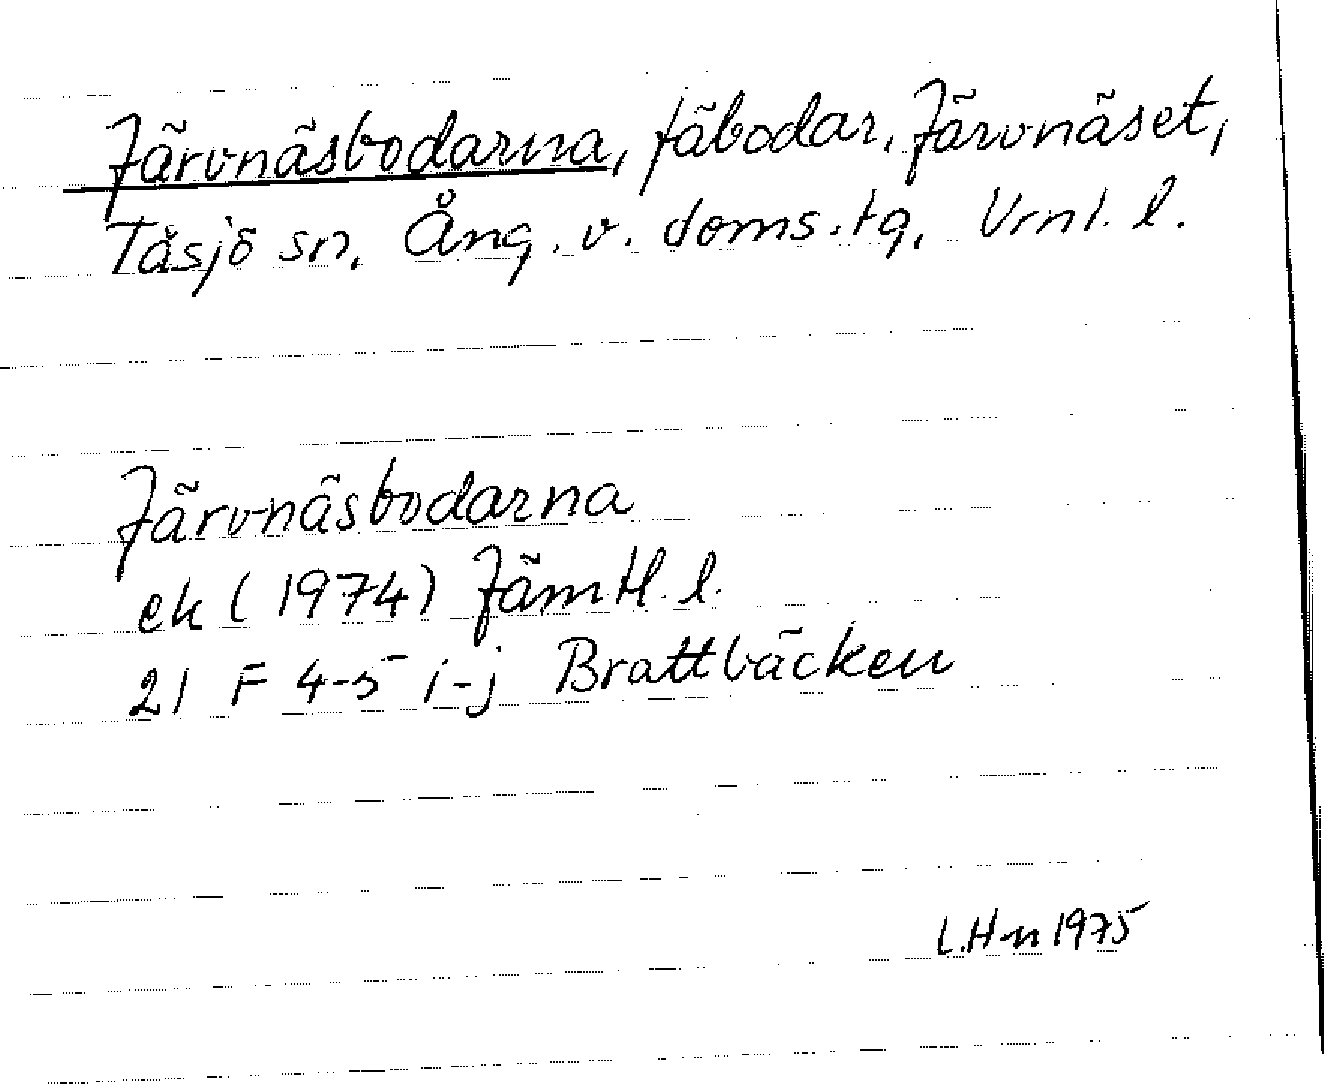 Järvnäsbodarna, fäbodar, Järvnäset,
Tåsjö sn. Ång. v. doms.tg, Vrnl. l.
Järvnäsbodarna
ek (1974) Jämtl. l.
21 F 4-5 i-j Brattbäcken
L.H-n 1975